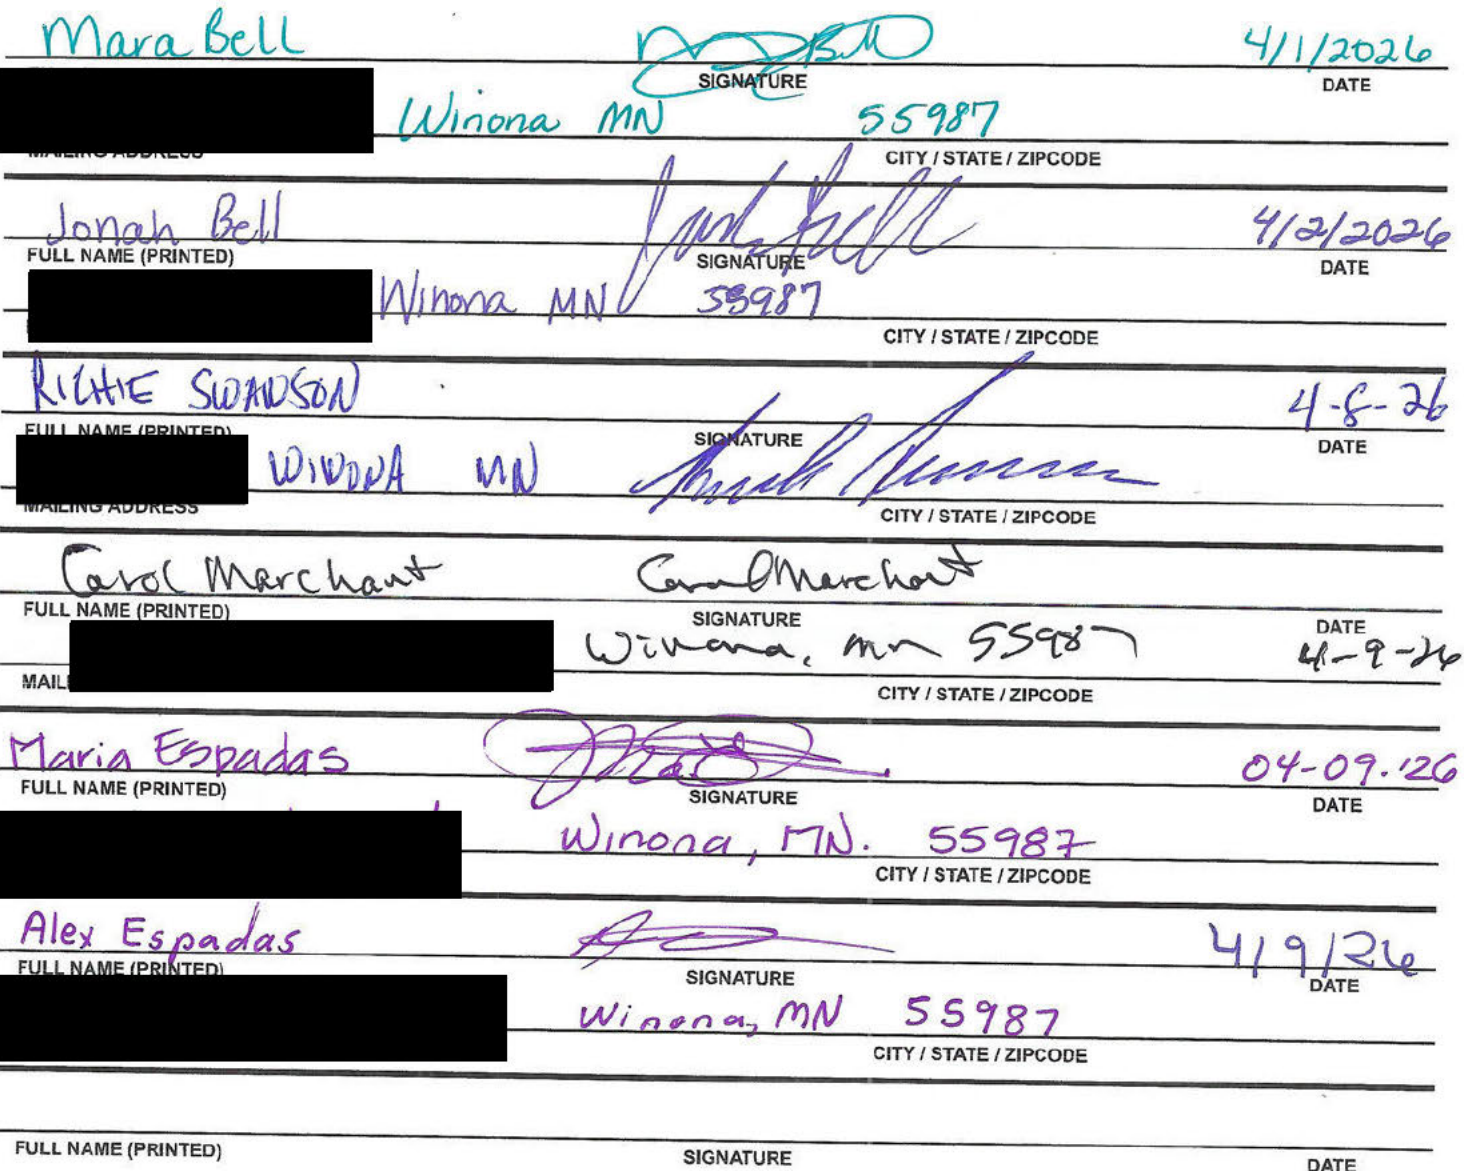 Mara Bell 4/1/2026
SIGNATURE DATE
Winona MN 55987
MAILING ADDRESS CITY / STATE / ZIPCODE
Jonah Bell 4/2/2026
FULL NAME (PRINTED) SIGNATURE DATE
Winona MN 55987
CITY / STATE / ZIPCODE
RICHIE SWANSON 4-8-26
FULL NAME (PRINTED) SIGNATURE DATE
WINONA MN
MAILING ADDRESS CITY / STATE / ZIPCODE
Carol Marchant Carol Marchant
FULL NAME (PRINTED) SIGNATURE DATE
Winona, mn 55987 4-9-26
MAIL CITY / STATE / ZIPCODE
Maria Espadas 04-09.'26
FULL NAME (PRINTED) SIGNATURE DATE
Winona, MN. 55987
CITY / STATE / ZIPCODE
Alex Espadas 4/9/26
FULL NAME (PRINTED) SIGNATURE DATE
Winona, MN 55987
CITY / STATE / ZIPCODE
FULL NAME (PRINTED) SIGNATURE DATE